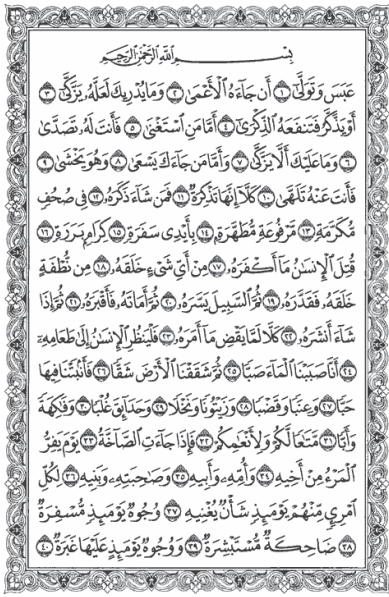 بِسْمِ اللَّهِ الرَّحْمَٰنِ الرَّحِيمِ
عَبَسَ وَتَوَلَّىٰٓ ١ أَن جَآءَهُ ٱلْأَعْمَىٰ ٢ وَمَا يُدْرِيكَ لَعَلَّهُۥ يَزَّكَّىٰٓ ٣
أَوْ يَذَّكَّرُ فَتَنفَعَهُ ٱلذِّكْرَىٰٓ ٤ أَمَّا مَنِ ٱسْتَغْنَىٰ ٥ فَأَنتَ لَهُۥ تَصَدَّىٰ
٦ وَمَا عَلَيْكَ أَلَّا يَزَّكَّىٰ ٧ وَأَمَّا مَن جَآءَكَ يَسْعَىٰ ٨ وَهُوَ يَخْشَىٰ ٩
فَأَنتَ عَنْهُ تَلَهَّىٰ ١٠ كَلَّآ إِنَّهَا تَذْكِرَةٌ ١١ فَمَن شَآءَ ذَكَرَهُۥ ١٢ فِى صُحُفٍ
مُّكَرَّمَةٍ ١٣ مَّرْفُوعَةٍ مُّطَهَّرَةٍۭ ١٤ بِأَيْدِى سَفَرَةٍ ١٥ كِرَامٍۭ بَرَرَةٍ ١٦
قُتِلَ ٱلْإِنسَٰنُ مَآ أَكْفَرَهُۥ ١٧ مِنْ أَىِّ شَىْءٍ خَلَقَهُۥ ١٨ مِن نُّطْفَةٍ
خَلَقَهُۥ فَقَدَّرَهُۥ ١٩ ثُمَّ ٱلسَّبِيلَ يَسَّرَهُۥ ٢٠ ثُمَّ أَمَاتَهُۥ فَأَقْبَرَهُۥ ٢١ ثُمَّ إِذَا
شَآءَ أَنشَرَهُۥ ٢٢ كَلَّا لَمَّا يَقْضِ مَآ أَمَرَهُۥ ٢٣ فَلْيَنظُرِ ٱلْإِنسَٰنُ إِلَىٰ طَعَامِهِۦٓ
٢٤ أَنَّا صَبَبْنَا ٱلْمَآءَ صَبًّا ٢٥ ثُمَّ شَقَقْنَا ٱلْأَرْضَ شَقًّا ٢٦ فَأَنۢبَتْنَا فِيهَا
حَبًّا ٢٧ وَعِنَبًا وَقَضْبًا ٢٨ وَزَيْتُونًا وَنَخْلًا ٢٩ وَحَدَآئِقَ غُلْبًا ٣٠ وَفَٰكِهَةً
وَأَبًّا ٣١ مَّتَٰعًا لَّكُمْ وَلِأَنْعَٰمِكُمْ ٣٢ فَإِذَا جَآءَتِ ٱلصَّآخَّةُ ٣٣ يَوْمَ يَفِرُّ
ٱلْمَرْءُ مِنْ أَخِيهِ ٣٤ وَأُمِّهِۦ وَأَبِيهِ ٣٥ وَصَٰحِبَتِهِۦ وَبَنِيهِ ٣٦ لِكُلِّ
ٱمْرِئٍ مِّنْهُمْ يَوْمَئِذٍ شَأْنٌ يُغْنِيهِ ٣٧ وُجُوهٌ يَوْمَئِذٍ مُّسْفِرَةٌ
٣٨ ضَاحِكَةٌ مُّسْتَبْشِرَةٌ ٣٩ وَوُجُوهٌ يَوْمَئِذٍ عَلَيْهَا غَبَرَةٌ ٤٠